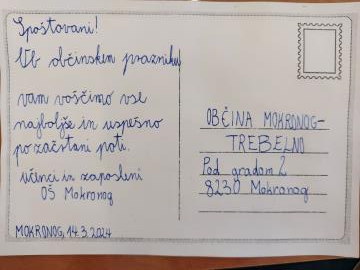 Spoštovani!
Ob občinskem prazniku
vam voščimo vse
najboljše in uspešno
po začrtani poti.
učenci in zaposleni
OŠ Mokronog
MOKRONOG, 14.3.2024
OBČINA MOKRONOG-
TREBELNO
Pod gradom 2
8230 Mokronog